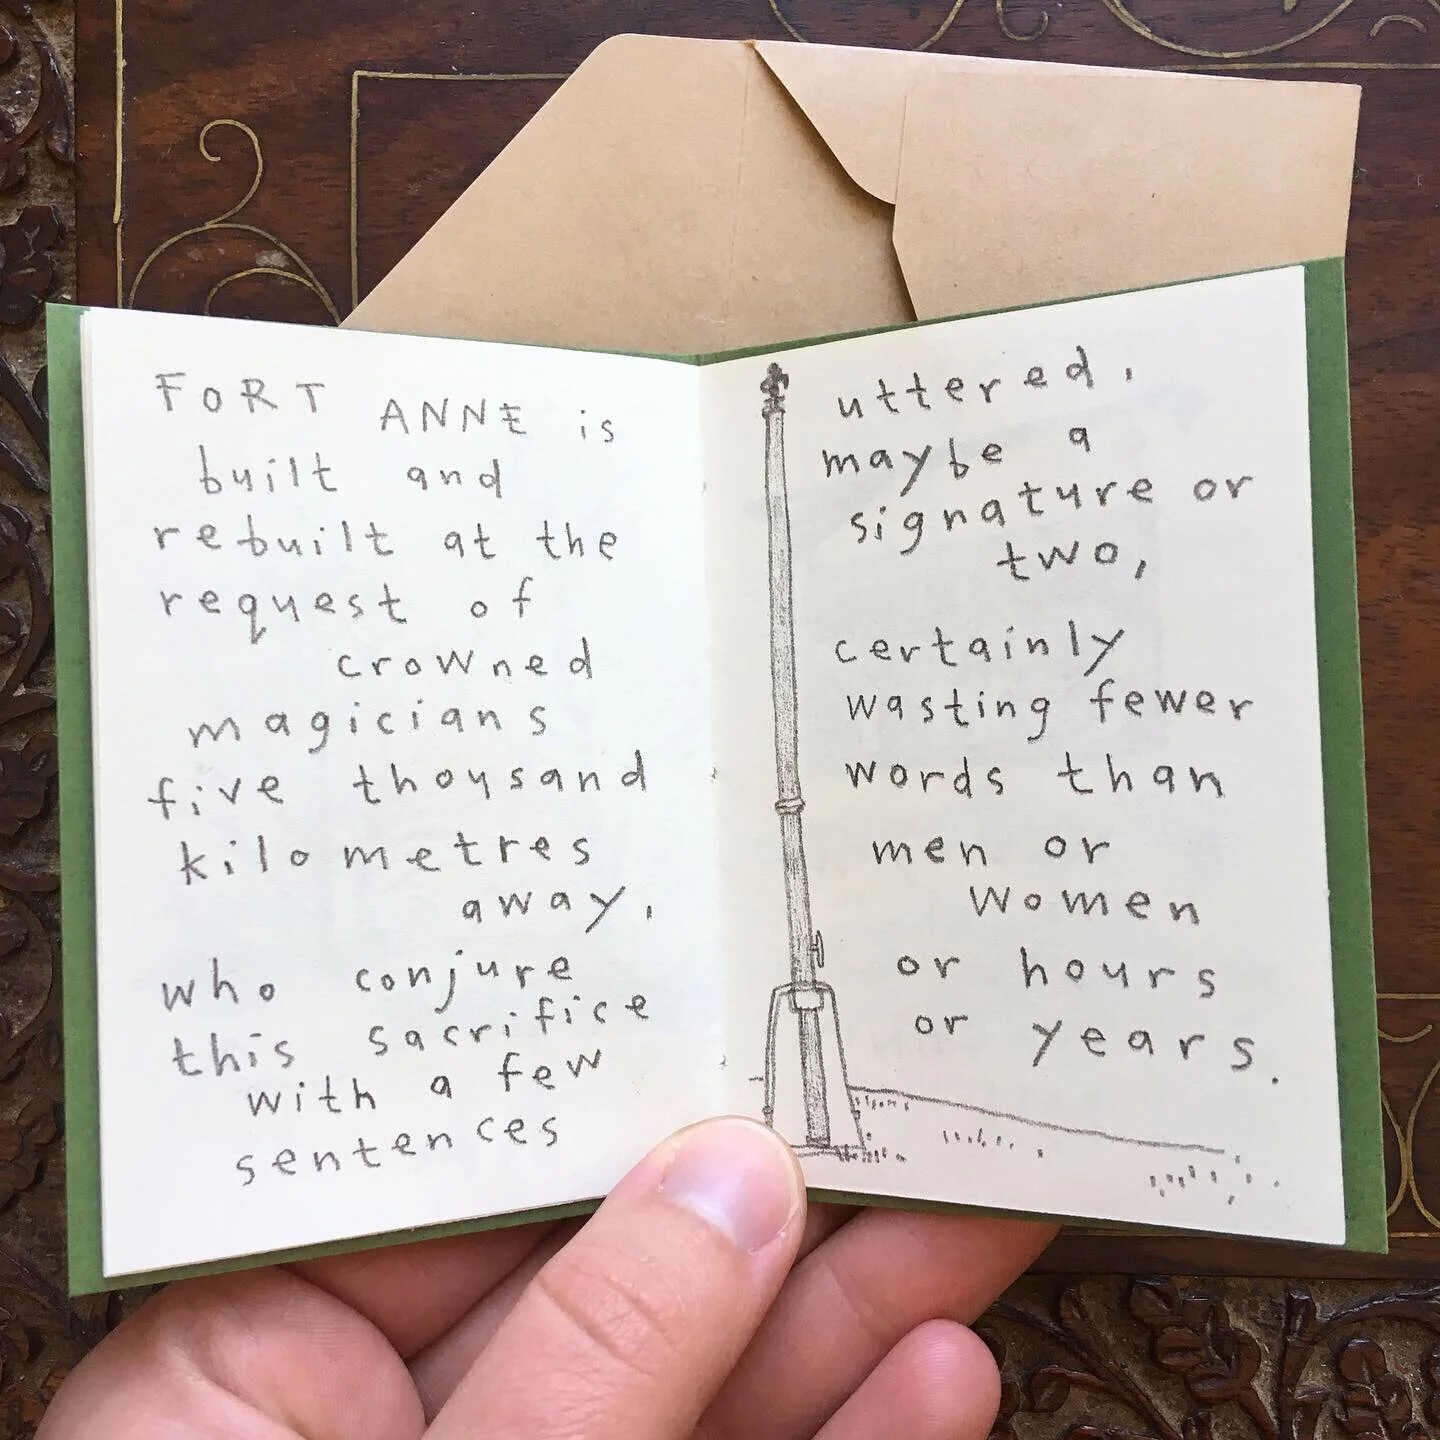 FORT ANNE is
built and
rebuilt at the
request of
crowned
magicians
five thousand
kilometres
away,
who conjure
this sacrifice
with a few
sentences
uttered,
maybe a
signature or
two,
certainly
wasting fewer
words than
men or
women
or hours
or years.